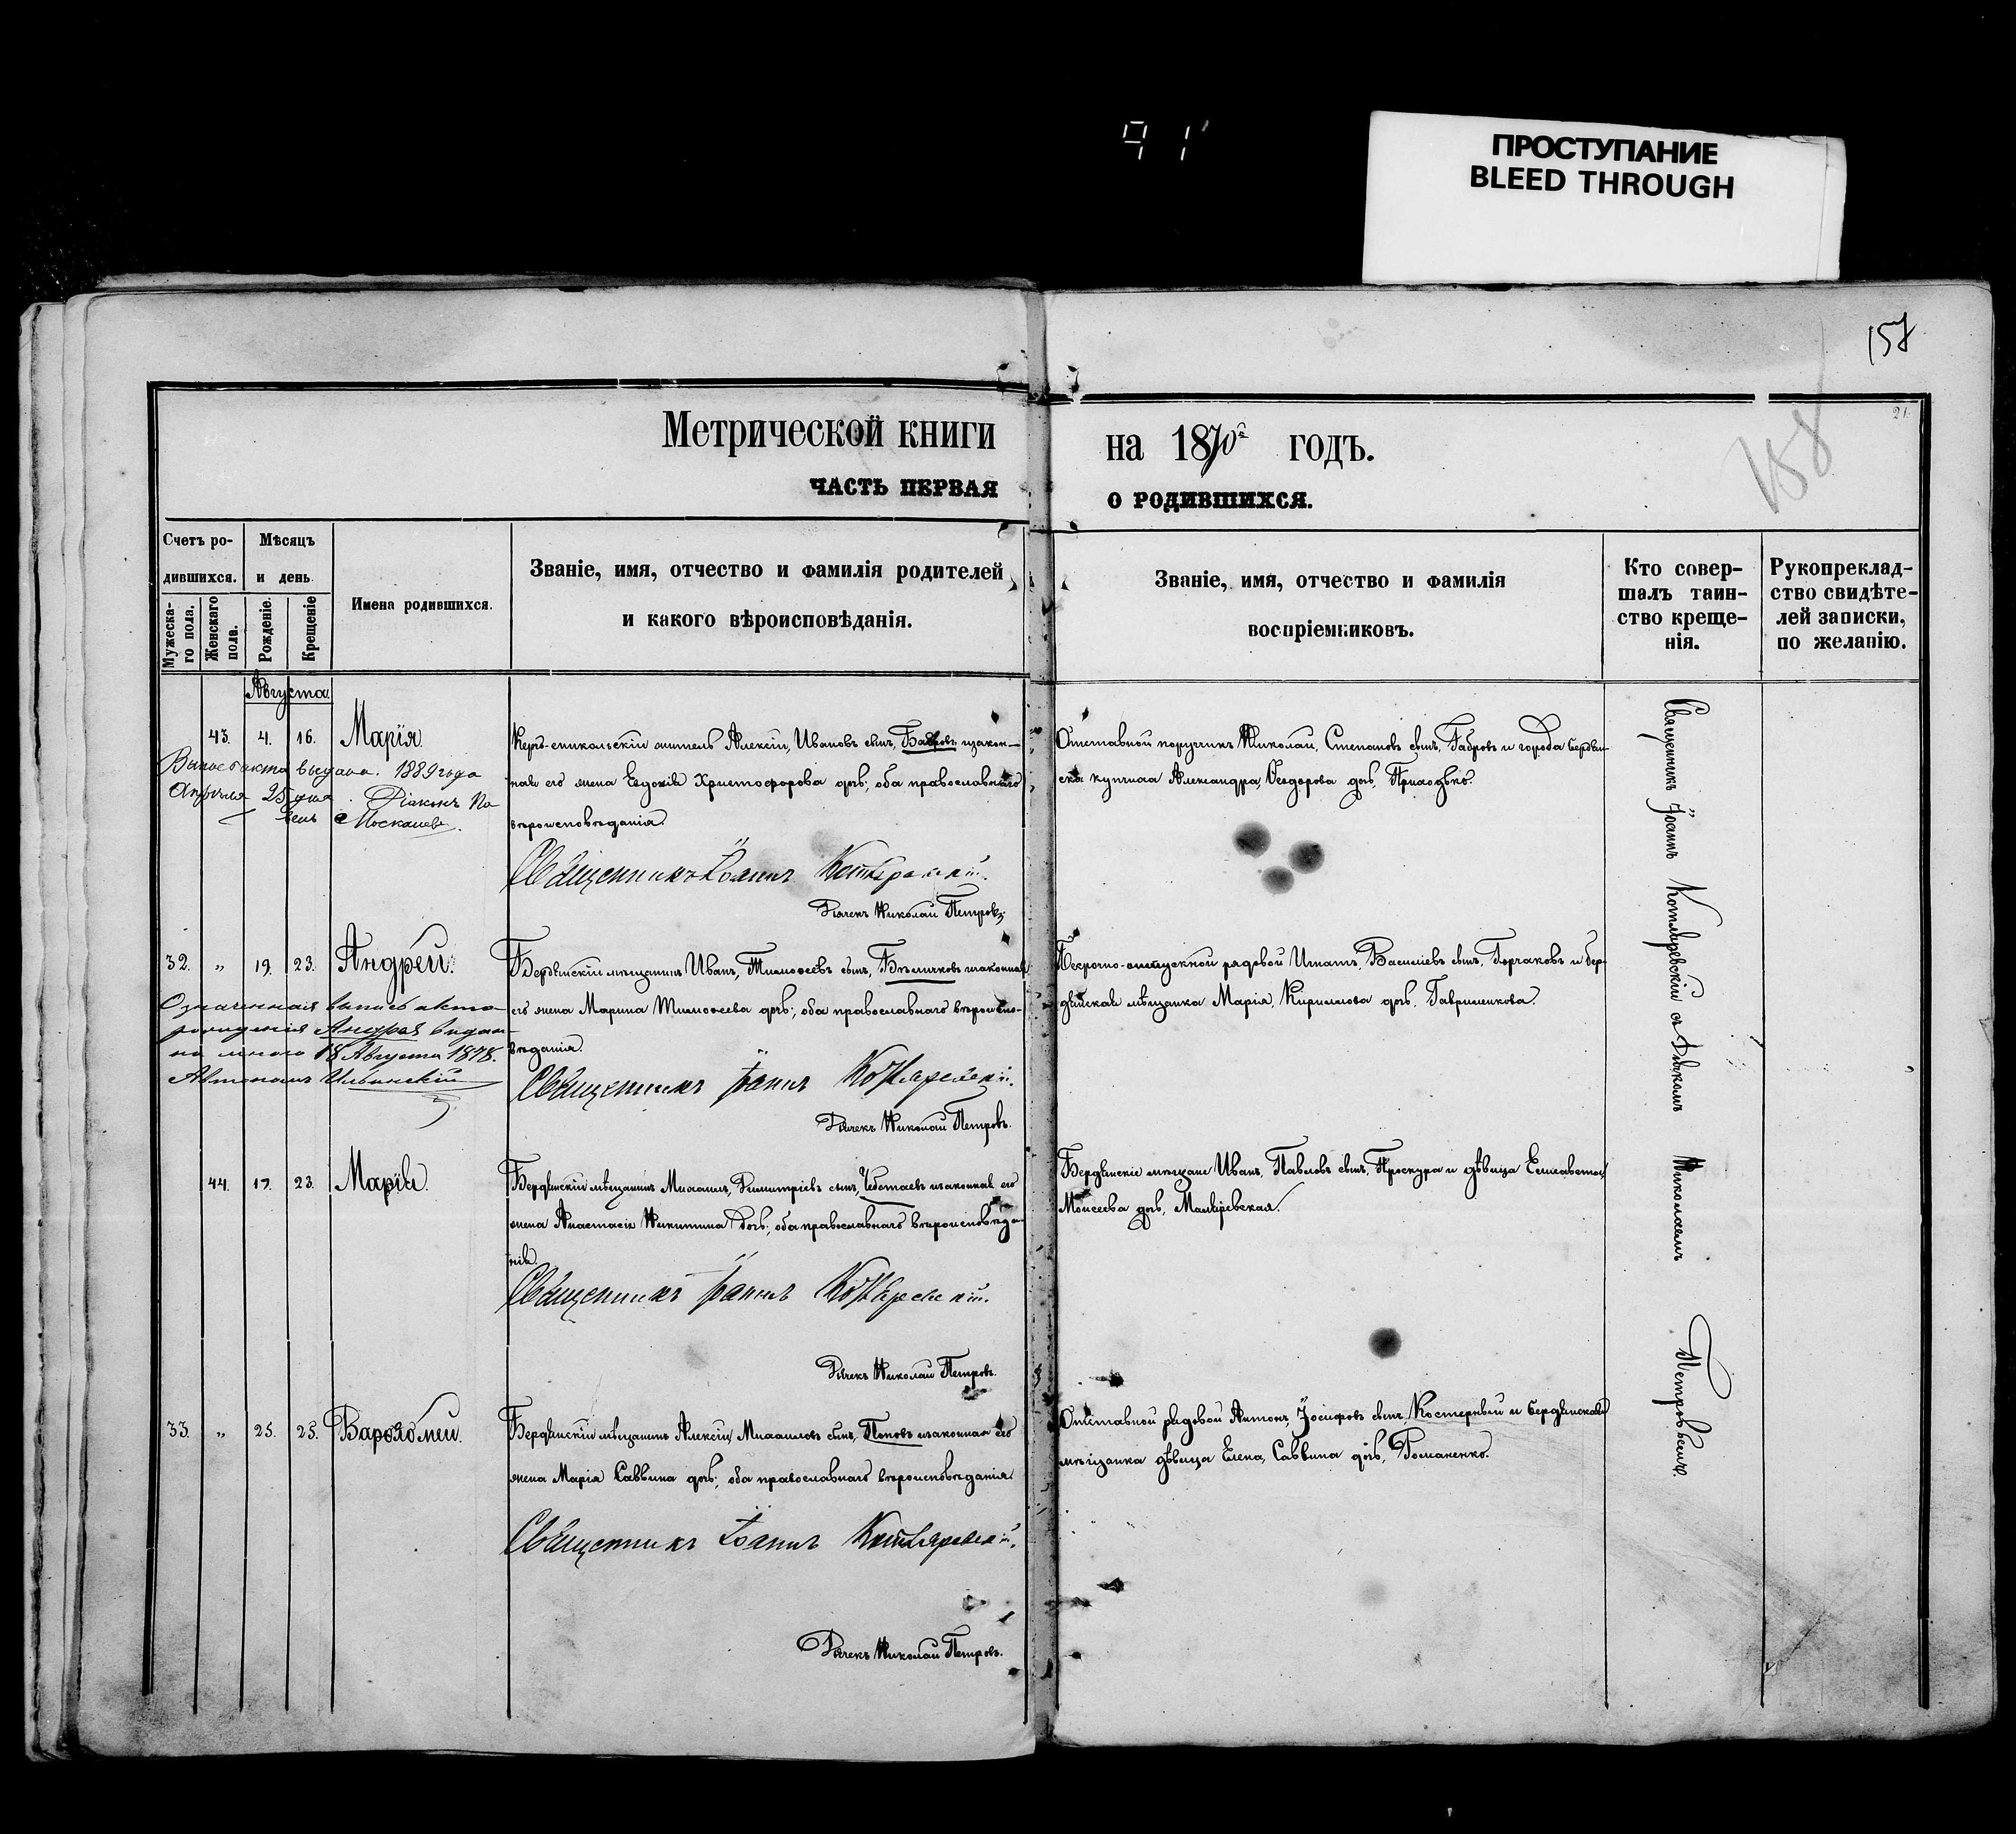 91
ПРОСТУПАНИЕ
BLEED THROUGH
158
21.
158
Метрической книги на 1870й годъ.
ЧАСТЬ ПЕРВАЯ О РОДИВШИХСЯ.
Счетъ ро-
дившихся.
Мужеска-
го пола.
Женскаго
пола.
Мѣсяцъ
и день.
Рожденіе.
Крещеніе
Имена родившихся.
Званіе, имя, отчество и фамилія родителей
и какого вѣроисповѣданія.
Званіе, имя, отчество и фамилія
воспріемниковъ.
Кто совер-
шалъ таин-
ство креще-
нія.
Рукопреклад-
ство свидѣте-
лей записки,
по желанію.
Августа.
43. 4. 16. Марія.
Керчь-еникольскій житель Алексій, Ивановъ сынъ, законн-
ная его жена Евдокія Христофорова дочь, оба православнаго
вѣроисповѣданія.
Священникъ Іоаннъ Котляревскій.
Дьячекъ Николай Петровъ.
Отставной поручикъ Николай, Степановъ сынъ, Габровъ и города Бердян-
ска купчиха Александра, Ѳеодорова дочь, Приходько.
Выпись акта выдана. 1889 года
Апрѣля 25 дня. Діаконъ Па
велъ Москалевъ.
32. „ 19. 23. Андрей.
Бердянскій мѣщанинъ Иванъ, Тимоѳеевъ сынъ, и законная
его жена Марина Тимоѳеева дочь; оба православнаго вѣроиспо-
вѣданія.
Священникъ Іоаннъ Котляревскій.
Дьячекъ Николай Петровъ.
Безсрочно-отпускной рядовой Игнатъ, Василіевъ сынъ, Горчаковъ и бер-
дянская мѣщанка Марія, Кириллова дочь, Гавриленкова.
Означенная выпись акта
рожденія Андрея выдан-
на мною 18 Августа 1878.
Автономъ Ильинскій
44. 17. 23. Марія.
Бердянскій мѣщанинъ Михаилъ, Димитріевъ сынъ, Чебстаевъ и законная его
жена Анастасія Никитина дочь; оба православнаго вѣроисповѣда-
нія.
Священникъ Іоаннъ Котляревскій.
Дьячекъ Николай Петровъ.
Бердянскіе мѣщане Иванъ, Павловъ сынъ, Проскура и дѣвица Елисавета,
Моисеева дочь, Маляревская.
33. „ 25. 25. Варѳоломей.
Бердянскій мѣщанинъ Алексій, Михаиловъ сынъ, Поповъ и законная его
жена Марія Саввина дочь; оба православнаго вѣроисповѣданія.
Священникъ Іоаннъ Котляревскій.
Дьячекъ Николай Петровъ.
Отставной рядовой Антонъ, Іосифовъ сынъ, Костерный и бердянская
мѣщанка дѣвица Елена, Саввина дочь, Романенко.
Священникъ Іоаннъ Котляревскій съ Дьячкомъ Николаемъ Петровымъ.